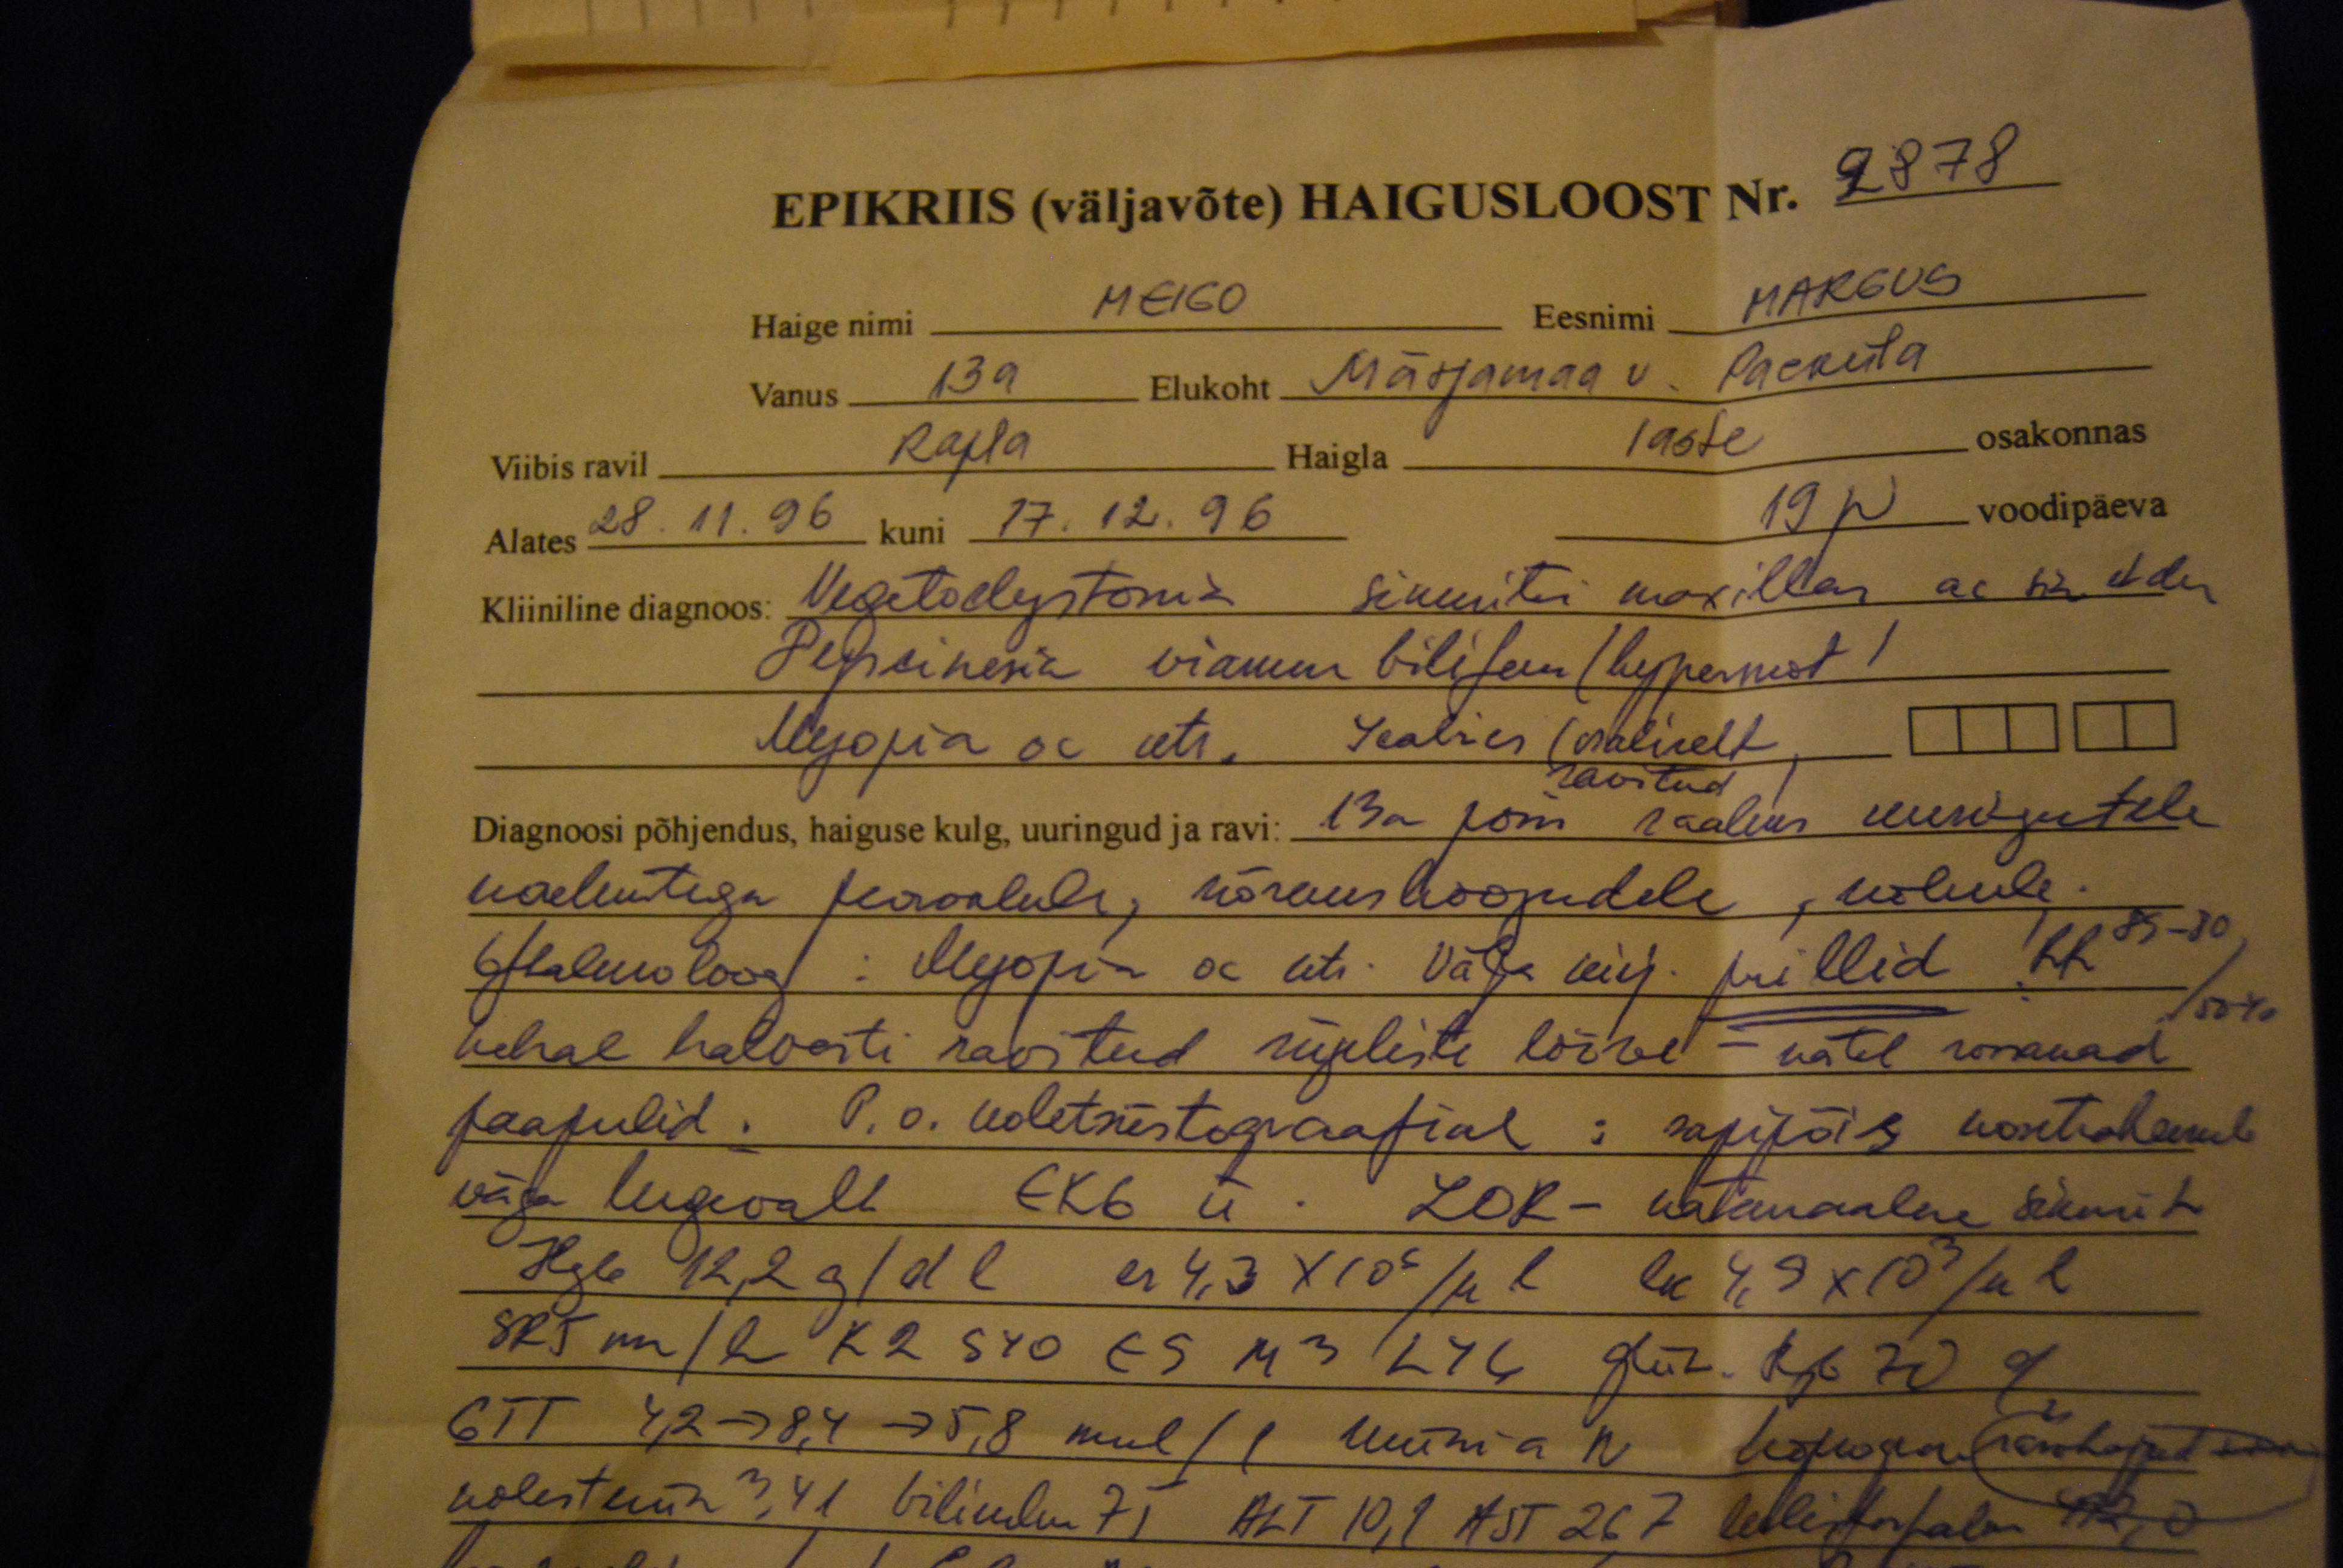 EPIKRIIS (väljavõte) HAIGUSLOOST Nr. 2878
Haige nimi MEIGO Eesnimi MARGUS
Vanus 13a Elukoht Märjamaa v. Paeküla
Viibis ravil Rapla Haigla laste osakonnas
Alates 28.11.96 kuni 17.12.96 19 p voodipäeva
Kliiniline diagnoos: Vegetodystonia sinusitis maxillar ac sin et dex
viarum bilifer (hypermot)
Myopia oc utr. Scabies (osaliselt
ravitud)
Diagnoosi põhjendus, haiguse kulg, uuringud ja ravi: 13a poiss saabus uuringutele
kaebustega peavalule, nõrkushoogudele, köhale.
Oftalmoloog: Myopia oc utr. Välja kirj. prillid RR 85-80
/50-40
kehal halvasti ravitud sügeliste lööve - kätel roosakad
paapulid. P.o. koletsüstograafial: sapipõis kontraheerub
väga tugevalt EKG ü. LOR - katarraalne sinusiit
Hgb 12,2 g/dl er 4,3 x 10⁶/µl lk 4,9 x 10³/µl
SR 5 mm/h K2 S40 E5 M3 L46
GTT 4,2 → 8,4 → 5,8 mmol/l uriin a N koprogr rasvhapped
kolesteriin 3,41 bilirubin 7,1 ALT 10,1 AST 26,7